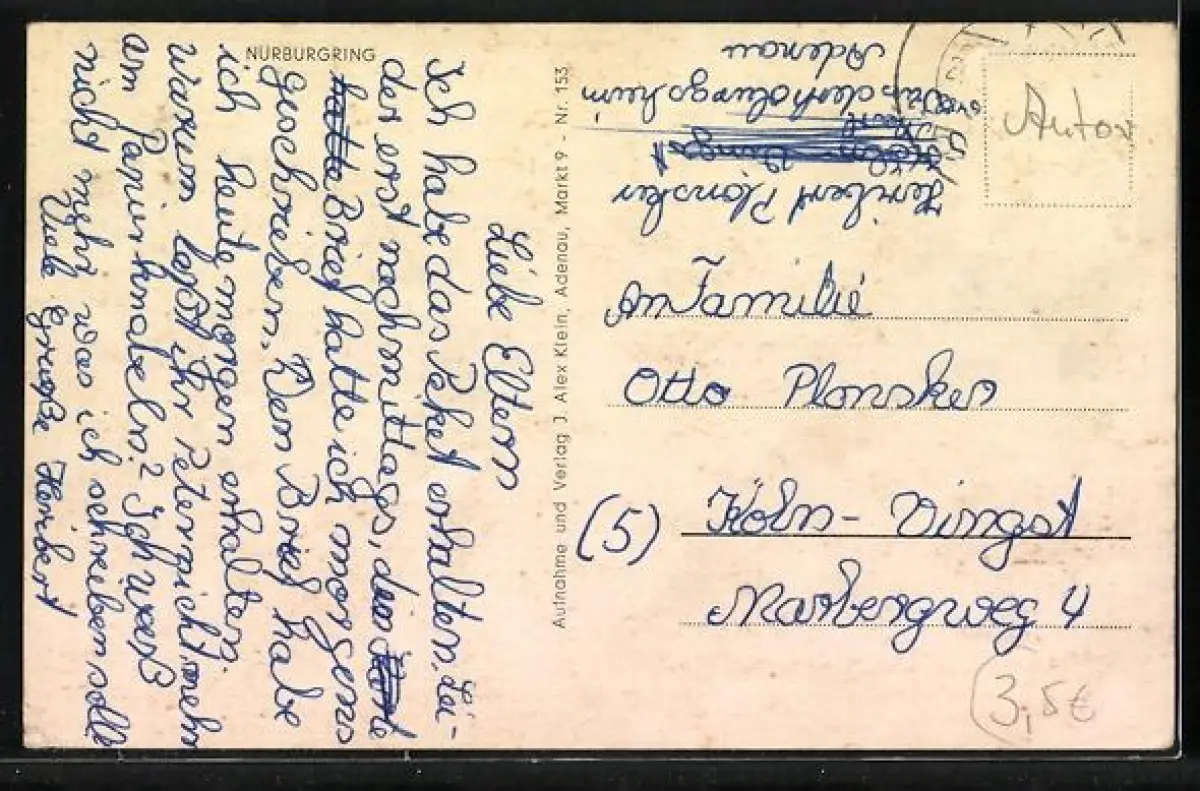 NÜRBURGRING
Liebe Eltern
Ich habe das Peket erhalten. Lei-
der erst nachmittags, den
Brief hatte ich morgens
geschrieben. Den Brief habe
ich heute morgen erhalten.
Warum laßt ihr Peter nicht mehr
am Papier knabeln? Ich weiß
nicht mehr was ich schreiben soll
Viele Grüße Heribert
Aufnahme und Verlag J. Alex Klein, Adenau, Markt 9 - Nr. 153
Heribert Plonsker
Köln Vingst
Adenau
Autor
An Familie
Otto Plonsker
(5) Köln - Vingst
Marbergweg 4
3,5€